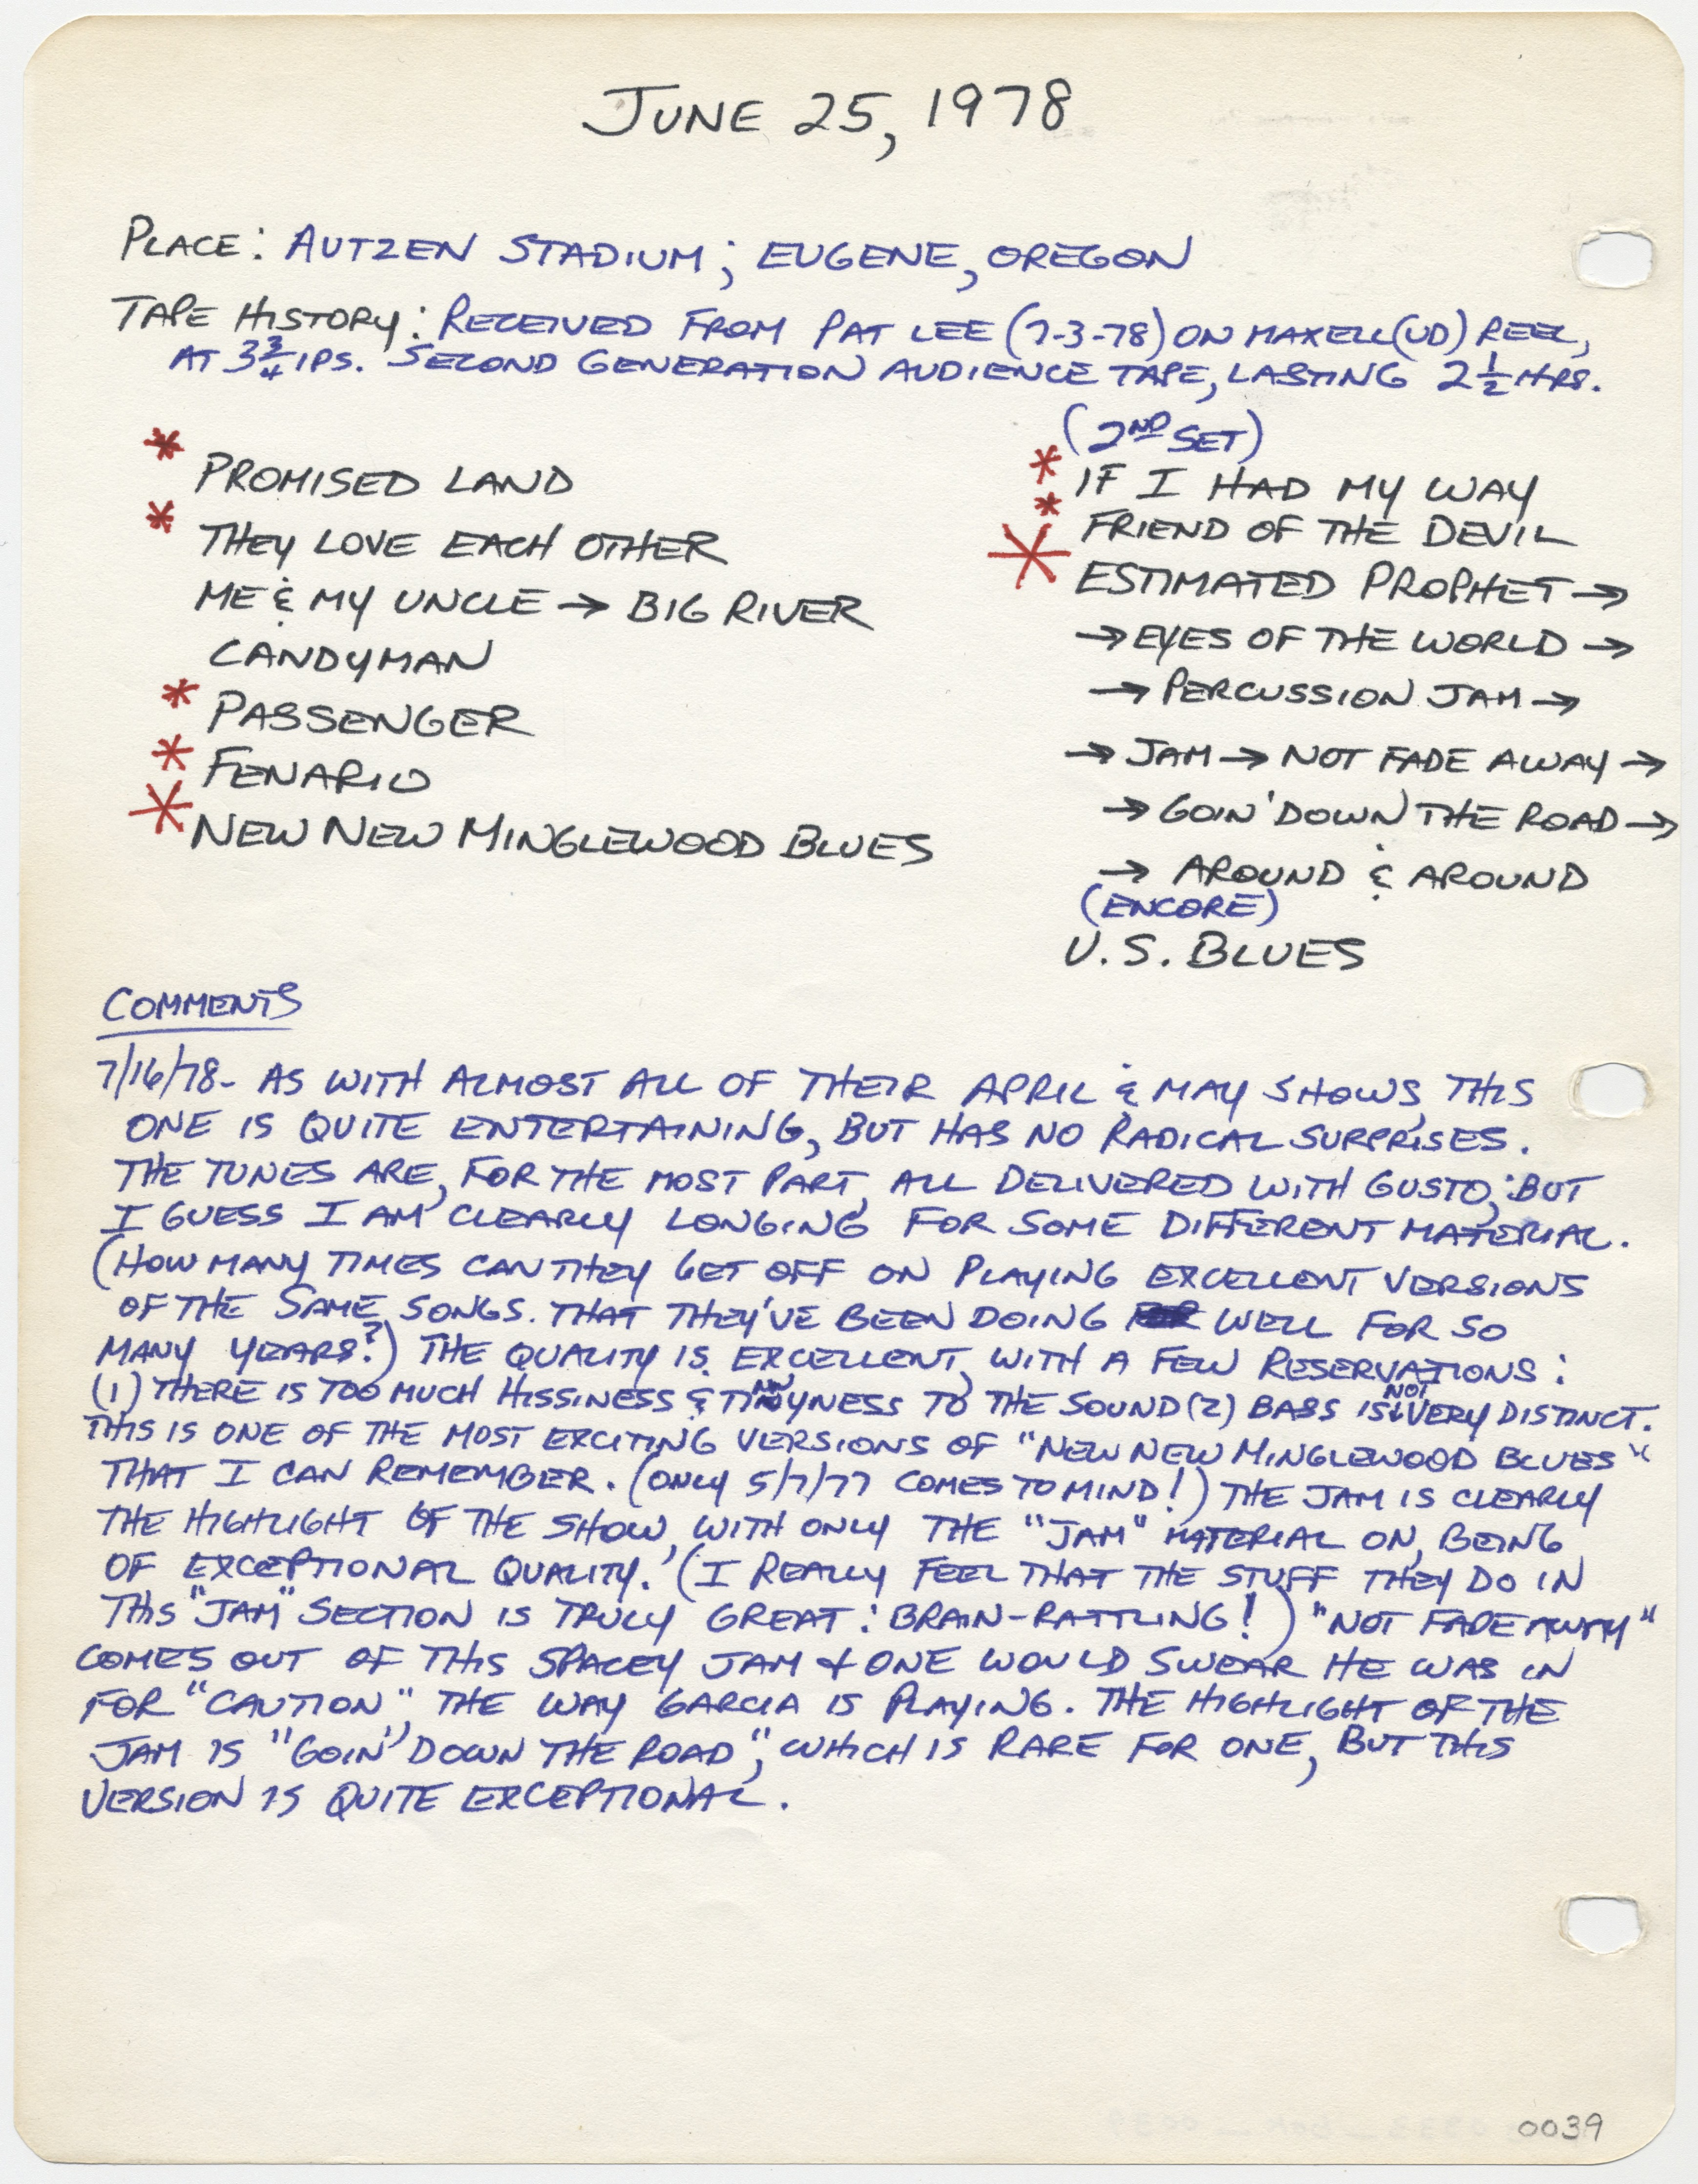 JUNE 25, 1978
PLACE: AUTZEN STADIUM; EUGENE, OREGON
TAPE HISTORY: RECEIVED FROM PAT LEE (7-3-78) ON MAXELL (UD) REEL,
AT 3 3/4 IPS. SECOND GENERATION AUDIENCE TAPE, LASTING 2 1/2 HRS.
* PROMISED LAND
* THEY LOVE EACH OTHER
ME & MY UNCLE → BIG RIVER
CANDYMAN
* PASSENGER
* FENARIO
* NEW NEW MINGLEWOOD BLUES
(2ND SET)
* IF I HAD MY WAY
* FRIEND OF THE DEVIL
* ESTIMATED PROPHET →
→ EYES OF THE WORLD →
→ PERCUSSION JAM →
→ JAM → NOT FADE AWAY →
→ GOIN' DOWN THE ROAD →
→ AROUND & AROUND
(ENCORE)
U.S. BLUES
COMMENTS
7/16/78- AS WITH ALMOST ALL OF THEIR APRIL & MAY SHOWS, THIS
ONE IS QUITE ENTERTAINING, BUT HAS NO RADICAL SURPRISES.
THE TUNES ARE, FOR THE MOST PART, ALL DELIVERED WITH GUSTO; BUT
I GUESS I AM CLEARLY LONGING FOR SOME DIFFERENT MATERIAL.
(HOW MANY TIMES CAN THEY GET OFF ON PLAYING EXCELLENT VERSIONS
OF THE SAME SONGS. THAT THEY'VE BEEN DOING WELL FOR SO
MANY YEARS?) THE QUALITY IS EXCELLENT, WITH A FEW RESERVATIONS:
(1) THERE IS TOO MUCH HISSINESS & TINNYNESS TO THE SOUND (2) BASS IS NOT VERY DISTINCT.
THIS IS ONE OF THE MOST EXCITING VERSIONS OF "NEW NEW MINGLEWOOD BLUES"
THAT I CAN REMEMBER. (ONLY 5/7/77 COMES TO MIND!) THE JAM IS CLEARLY
THE HIGHLIGHT OF THE SHOW, WITH ONLY THE "JAM" MATERIAL ON, BEING
OF EXCEPTIONAL QUALITY. (I REALLY FEEL THAT THE STUFF THEY DO IN
THIS "JAM" SECTION IS TRULY GREAT: BRAIN-RATTLING!) "NOT FADE AWAY"
COMES OUT OF THIS SPACEY JAM & ONE WOULD SWEAR HE WAS IN
FOR "CAUTION", THE WAY GARCIA IS PLAYING. THE HIGHLIGHT OF THE
JAM IS "GOIN' DOWN THE ROAD", WHICH IS RARE FOR ONE, BUT THIS
VERSION IS QUITE EXCEPTIONAL.
0039